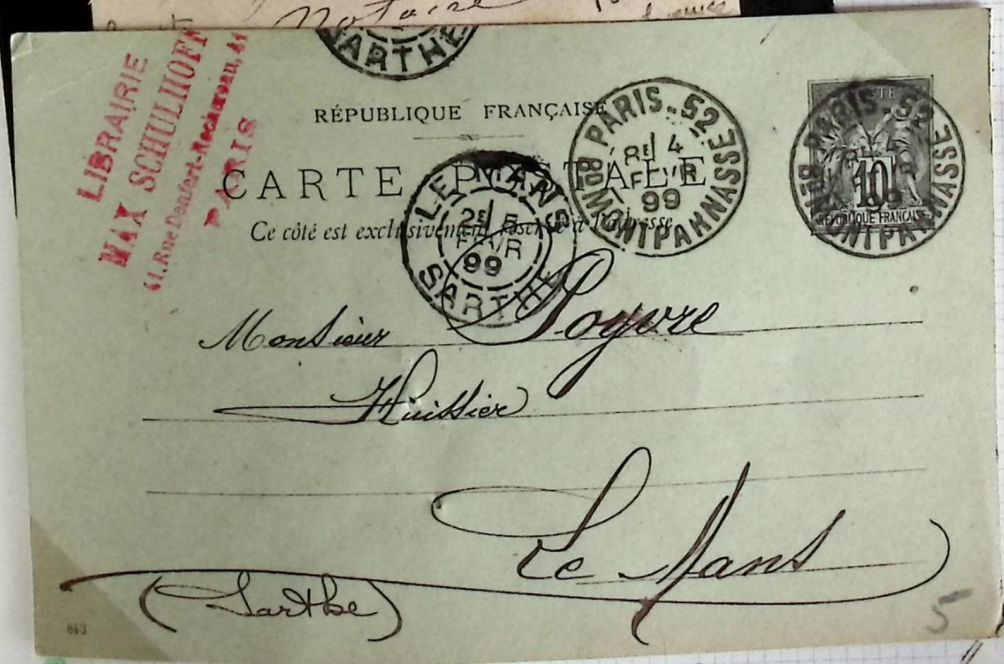 Notaire
SARTHE
LIBRAIRIE
MAX SCHULHOFF
41, Rue Denfert-Rochereau, 41
PARIS
RÉPUBLIQUE FRANÇAISE
CARTE POSTALE
Ce côté est exclusivement réservé à l'adresse
PARIS - 52
8E 4
FEVR
99
R. DU MONTPARNASSE
PARIS - 52
8E 4
FEVR
99
R. DU MONTPARNASSE
POSTE
10
RÉPUBLIQUE FRANÇAISE
LE MANS
2E 5
FEVR
99
SARTHE
Monsieur Poyvre
Huissier
Le Mans
(Sarthe)
843
5